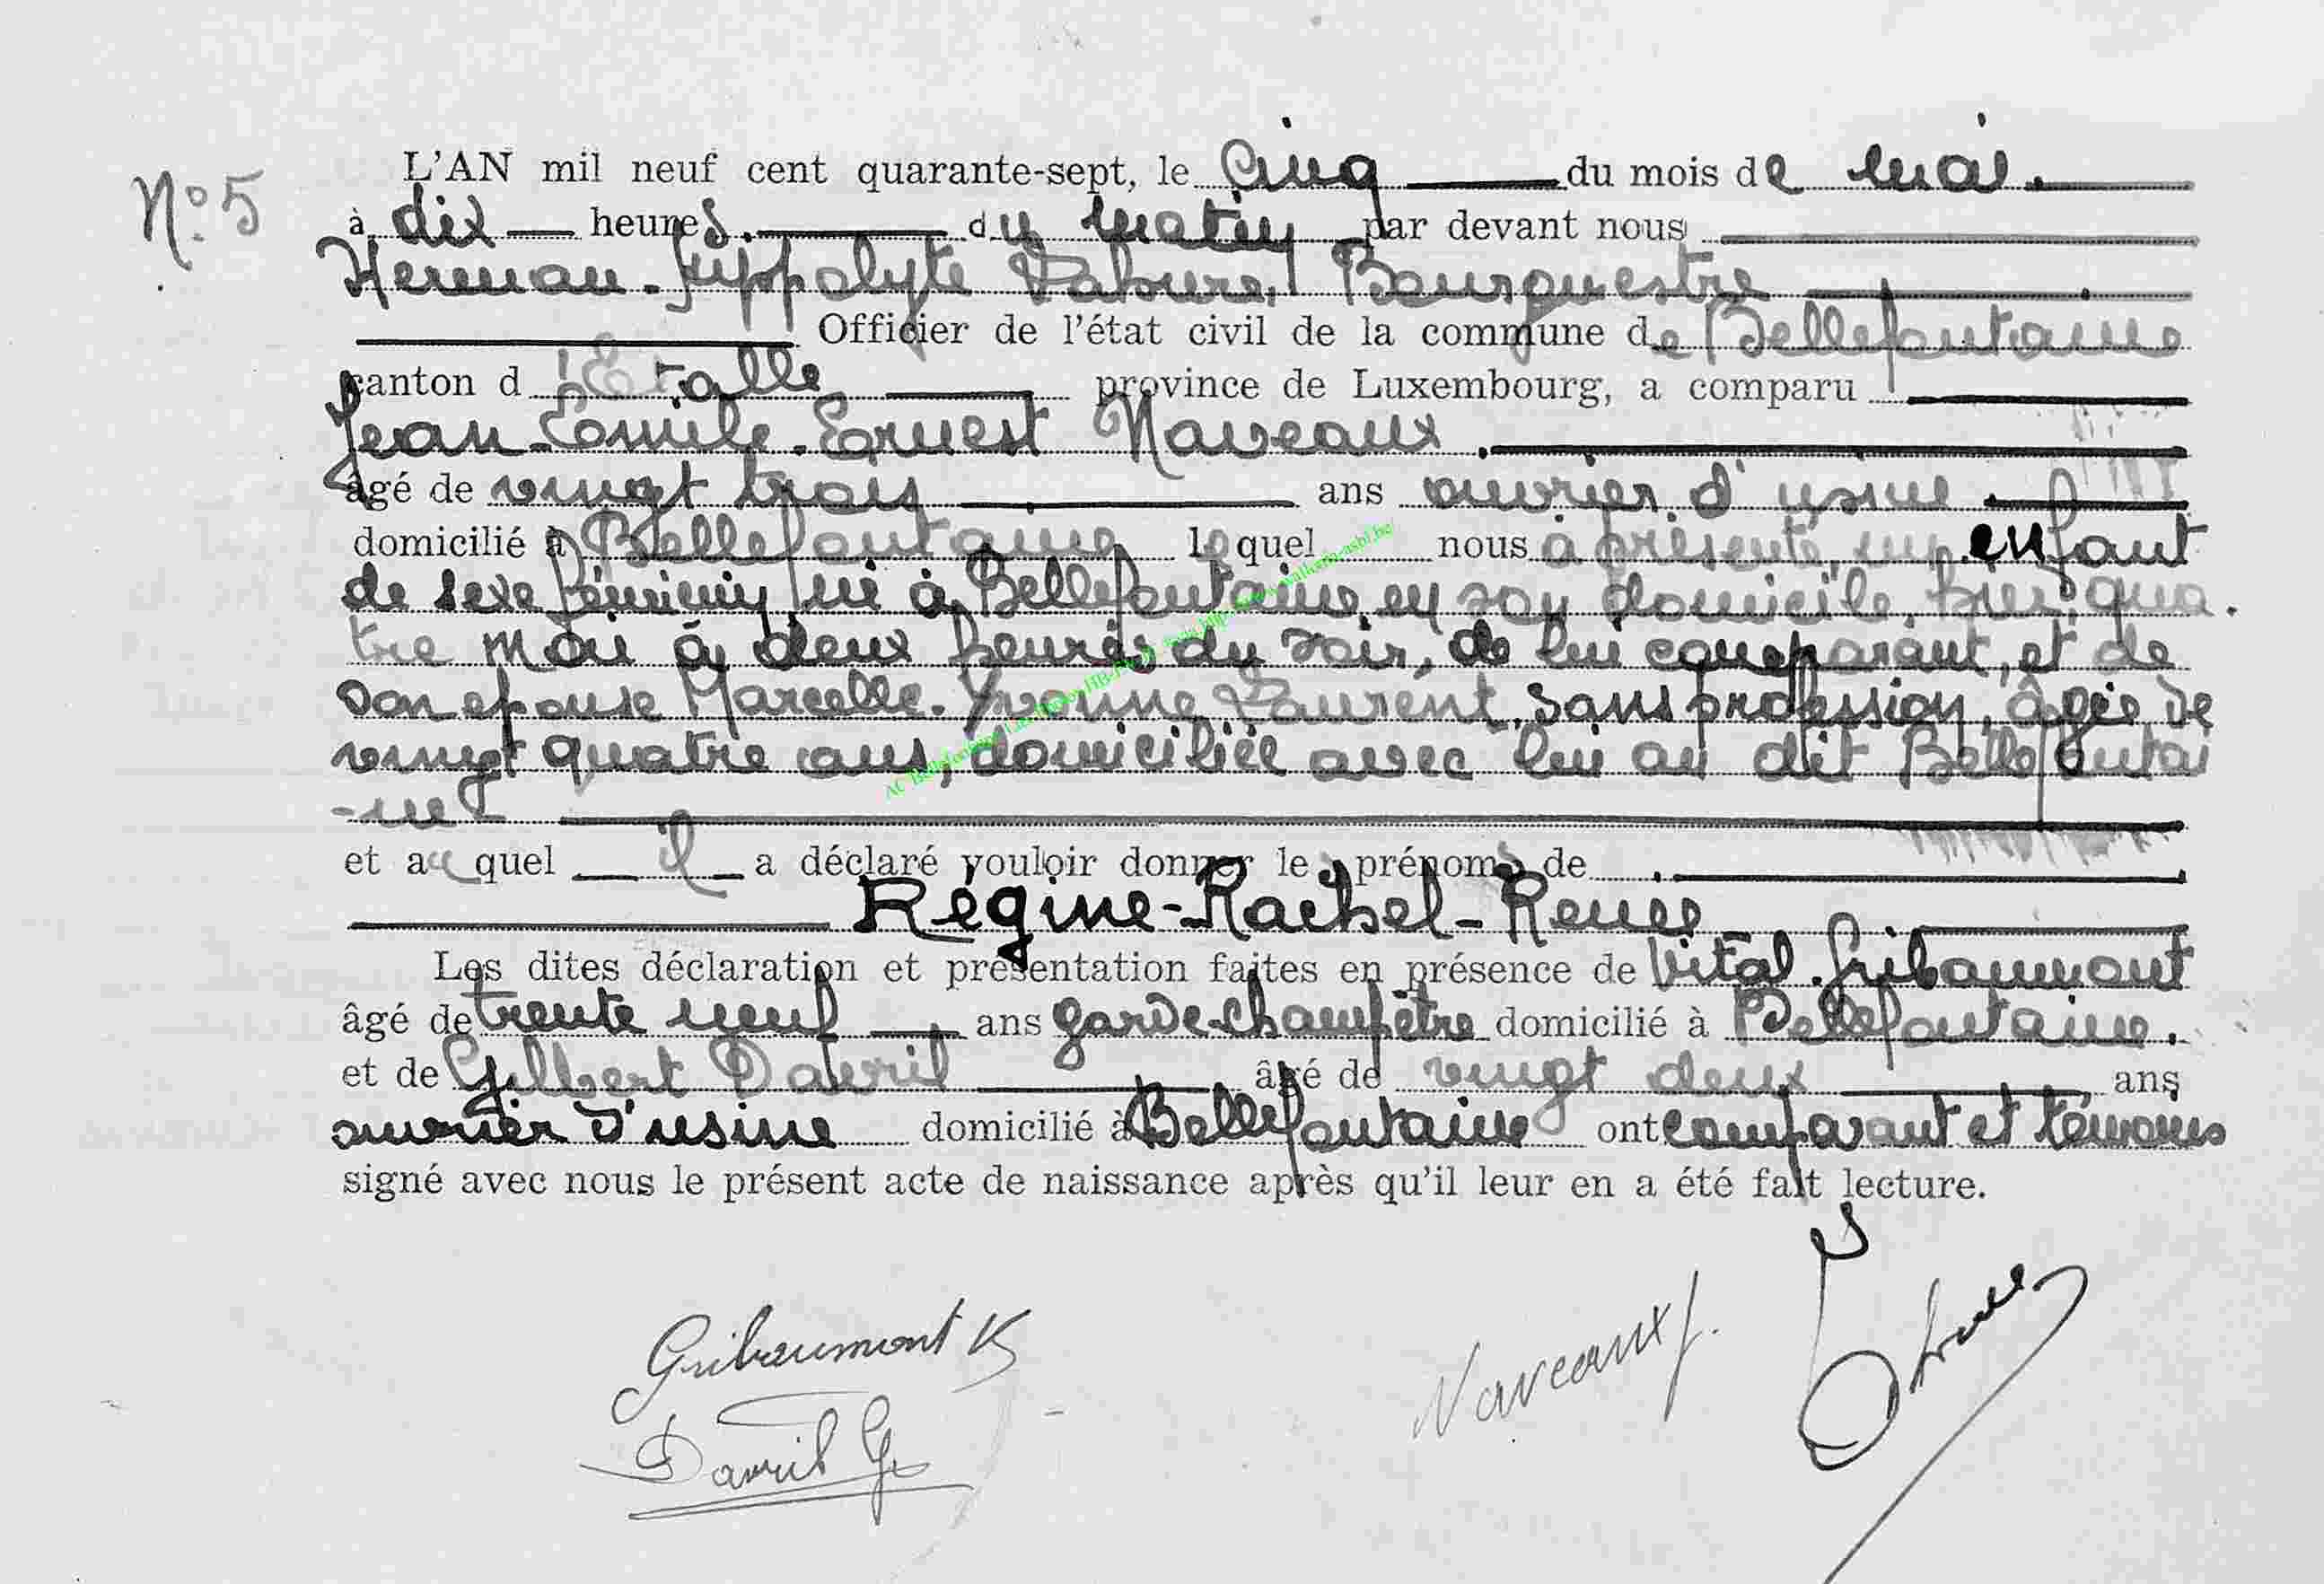 N° 5
L'AN mil neuf cent quarante-sept, le Cinq du mois de mai.
à dix heures. du matin par devant nous
Herman-Hyppolyte Bourguestre
Officier de l'état civil de la commune de Bellefontaine
canton d'Etalle province de Luxembourg, a comparu
Jean-Emile-Ernest Naveaux.
âgé de vingt trois ans ouvrier d'usine.
domicilié à Bellefontaine lequel nous a présenté un enfant
de sexe féminin né à Bellefontaine en son domicile, hier qua
tre mai à deux heures du soir, de lui comparant, et de
son epouse Marcelle-Yvonne Laurent. sans profession, âgée de
vingt quatre ans, domiciliée avec lui au dit Bellefontai
-ne
et auquel il a déclaré vouloir donner les prénoms de
Régine-Rachel-Renée
Les dites déclaration et présentation faites en présence de Vital Gribaumont
âgé de trente neuf ans garde-champêtre domicilié à Bellefontaine.
et de Gilbert Davril âgé de vingt deux ans
ouvrier d'usine domicilié à Bellefontaine ont comparant et témoins
signé avec nous le présent acte de naissance après qu'il leur en a été fait lecture.
Gribaumont V
Naveaux J.
Davril G